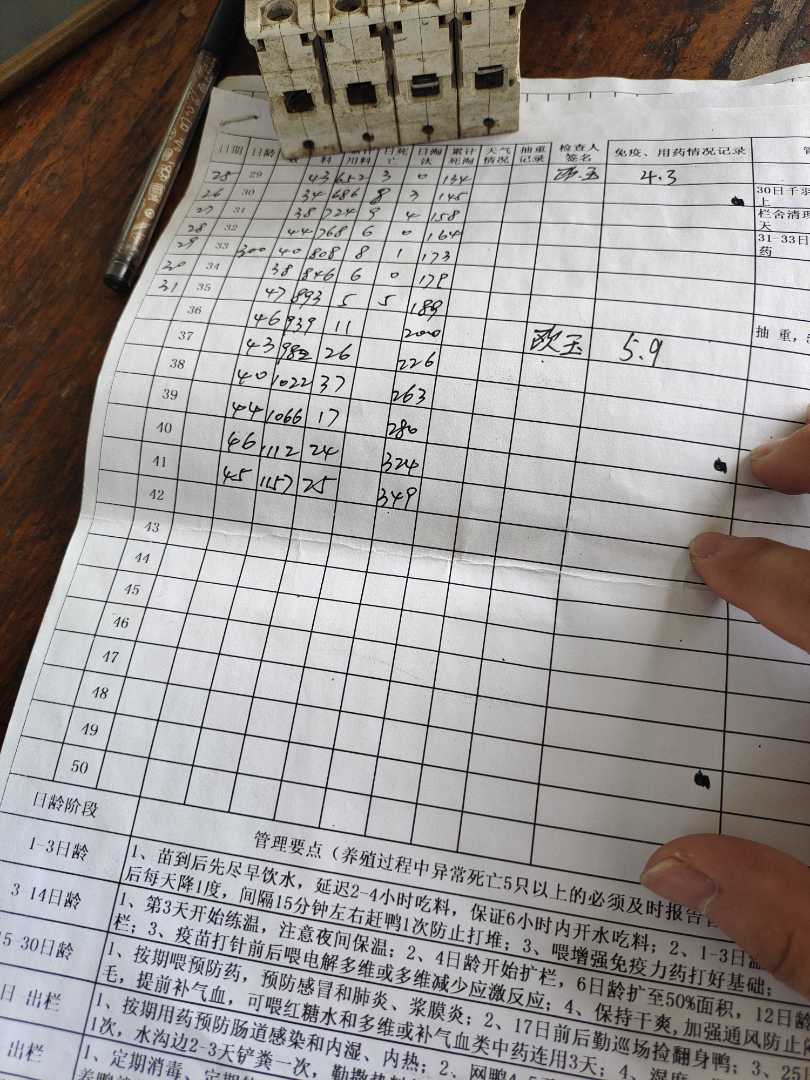 日期 日龄 料 用料 亡 日淘汰 累计死淘 天气情况 抽重记录 检查人签名 免疫、用药情况记录
25 29 43 652 3 0 134 4.3
26 30 34 686 8 3 145 30日千羽
上
27 31 38 724 9 4 158 栏舍清理
天
28 32 44 768 6 0 164 31-33日
药
29 33 300 40 808 8 1 173
30 34 38 846 6 0 179
31 35 47 893 5 5 189
36 46 939 11 200 抽重，
37 43 982 26 226 欧玉 5.9
38 40 1022 37 263
39 44 1066 17 280
40 46 1112 24 324
41 45 1157 25 349
42
43
44
45
46
47
48
49
50
日龄阶段 管理要点（养殖过程中异常死亡5只以上的必须及时报告
1-3日龄 1、苗到后先尽早饮水，延迟2-4小时吃料，保证6小时内开水吃料；2、1-3日温
后每天降1度，间隔15分钟左右赶鸭1次防止打堆；3、喂增强免疫力药打好基础；
3-14日龄 1、第3天开始练温，注意夜间保温；2、4日龄开始扩栏，6日龄扩至50%面积，12日龄
栏；3、疫苗打针前后喂电解多维或多维减少应激反应；4、保持干爽，加强通风防止
15-30日龄 1、按期喂预防药，预防感冒和肺炎、浆膜炎；2、17日前后勤巡场捡翻身鸭；3、25
毛，提前补气血，可喂红糖水和多维或补气血类中药连用3天；4、湿度
日-出栏 1、按期用药预防肠道感染和内湿、内热；2、网鸭4-5
1次，水沟边2-3天铲粪一次，勤撒
出栏 1、定期消毒、定期